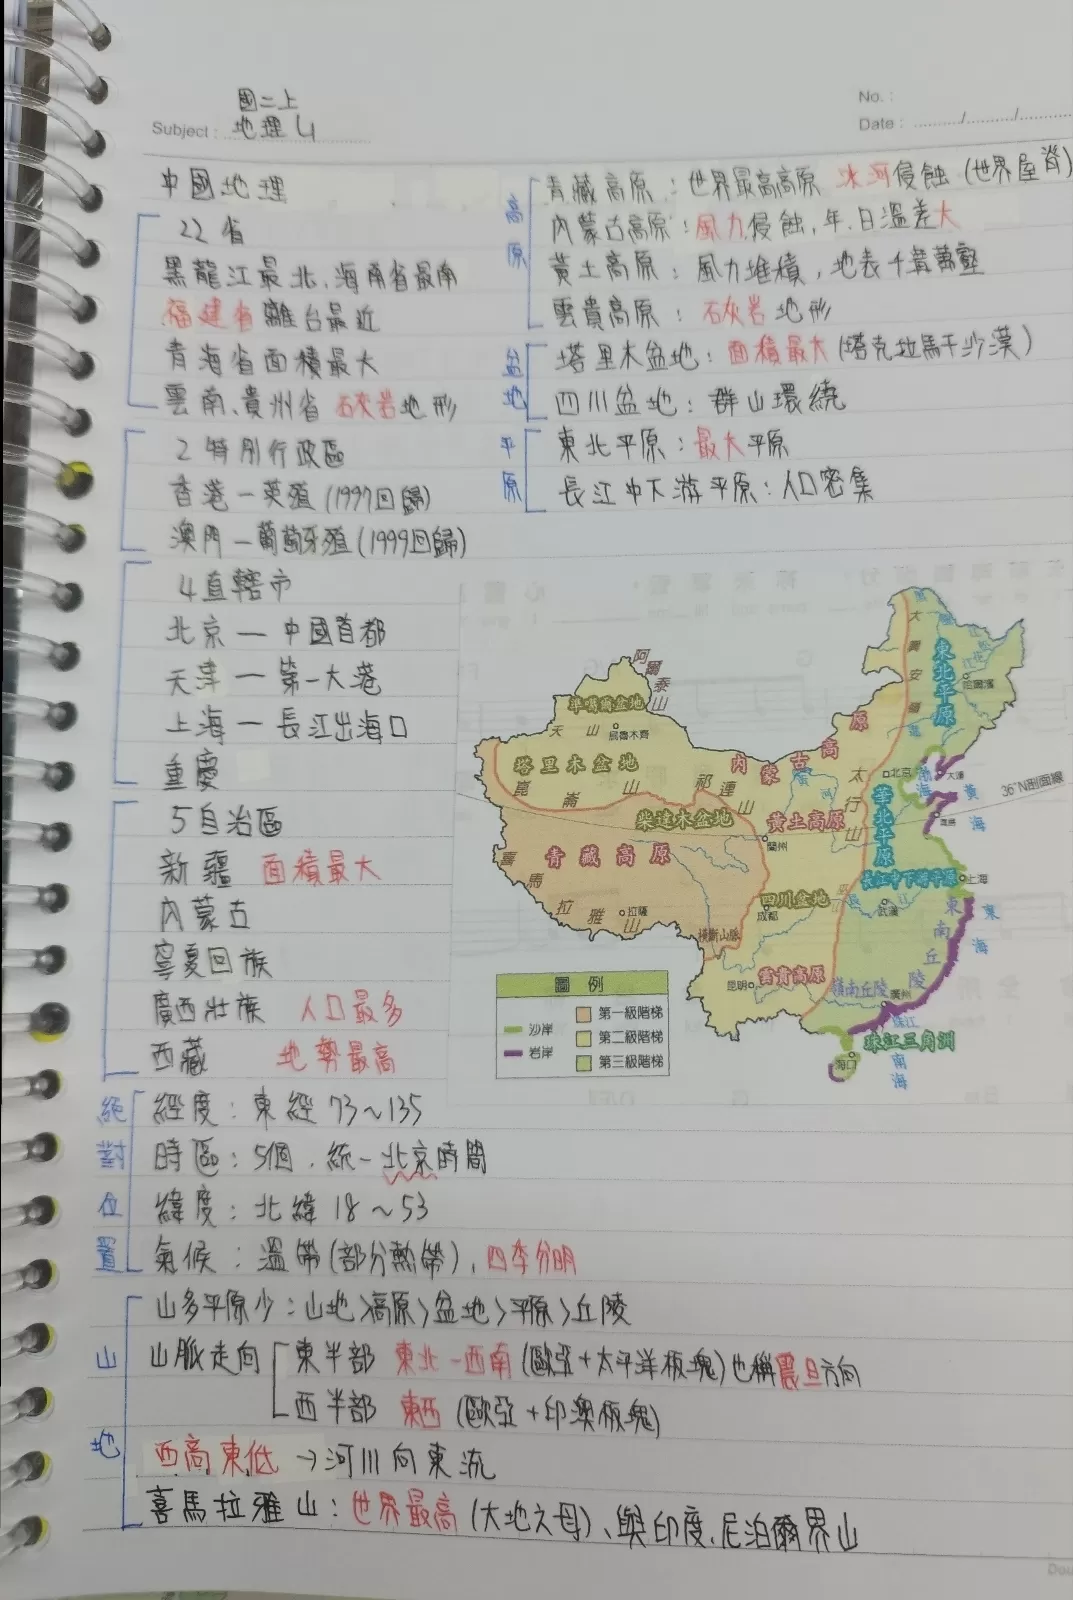 國二上
Subject : 地理 4
No. :
Date : ........./........./.........
中國地理
22省
黑龍江最北、海南省最南
福建省離台最近
青海省面積最大
雲南、貴州省 石灰岩地形
2特別行政區
香港－英殖(1997回歸)
澳門－葡萄牙殖(1999回歸)
4直轄市
北京－中國首都
天津－第一大港
上海－長江出海口
重慶
5自治區
新疆 面積最大
內蒙古
寧夏回族
廣西壯族 人口最多
西藏 地勢最高
高原
青藏高原：世界最高高原 冰河侵蝕(世界屋脊)
內蒙古高原：風力侵蝕，年、日溫差大
黃土高原：風力堆積，地表千溝萬壑
雲貴高原：石灰岩地形
盆地
塔里木盆地：面積最大(塔克拉馬干沙漠)
四川盆地：群山環繞
平原
東北平原：最大平原
長江中下游平原：人口密集
阿爾泰山
準噶爾盆地
天山
烏魯木齊
塔里木盆地
崑崙山
祁連山
柴達木盆地
青藏高原
喜馬拉雅山
拉薩
橫斷山脈
內蒙古高原
黃河
黃土高原
蘭州
太行山
四川盆地
成都
巫山
昆明
雲貴高原
大興安嶺
東北平原
哈爾濱
北京
渤海
大連
黃海
青島
36°N剖面線
華北平原
長江中下游平原
上海
長江
武漢
東海
東南丘陵
嶺南丘陵
廣州
珠江
珠江三角洲
海口
南海
圖例
沙岸
岩岸
第一級階梯
第二級階梯
第三級階梯
絕對位置
經度：東經 73～135
時區：5個，統一北京時間
緯度：北緯 18～53
氣候：溫帶(部分熱帶)，四季分明
山地
山多平原少：山地>高原>盆地>平原>丘陵
山脈走向
東半部 東北－西南(歐亞+太平洋板塊)也稱震旦方向
西半部 東西 (歐亞+印澳板塊)
西高東低 →河川向東流
喜馬拉雅山：世界最高(大地之母)、與印度、尼泊爾界山